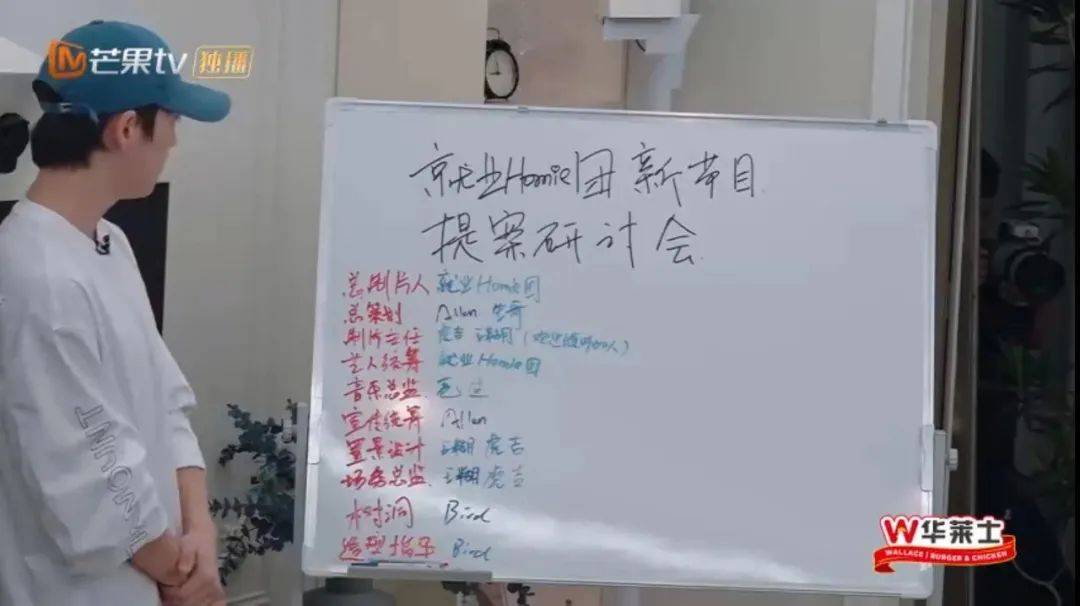 芒果tv 独播
就业Homie团新节目
提案研讨会
总制片人 就业Homie团
总策划 Allan
制片主任 虎吉 珊瑚
艺人统筹 就业Homie团
音乐总监
宣传统筹 Allan
置景设计 珊瑚 虎吉
场务总监 珊瑚 虎吉
树洞 Bird
造型指导 Bird
W华莱士
WALLACE | BURGER & CHICKEN